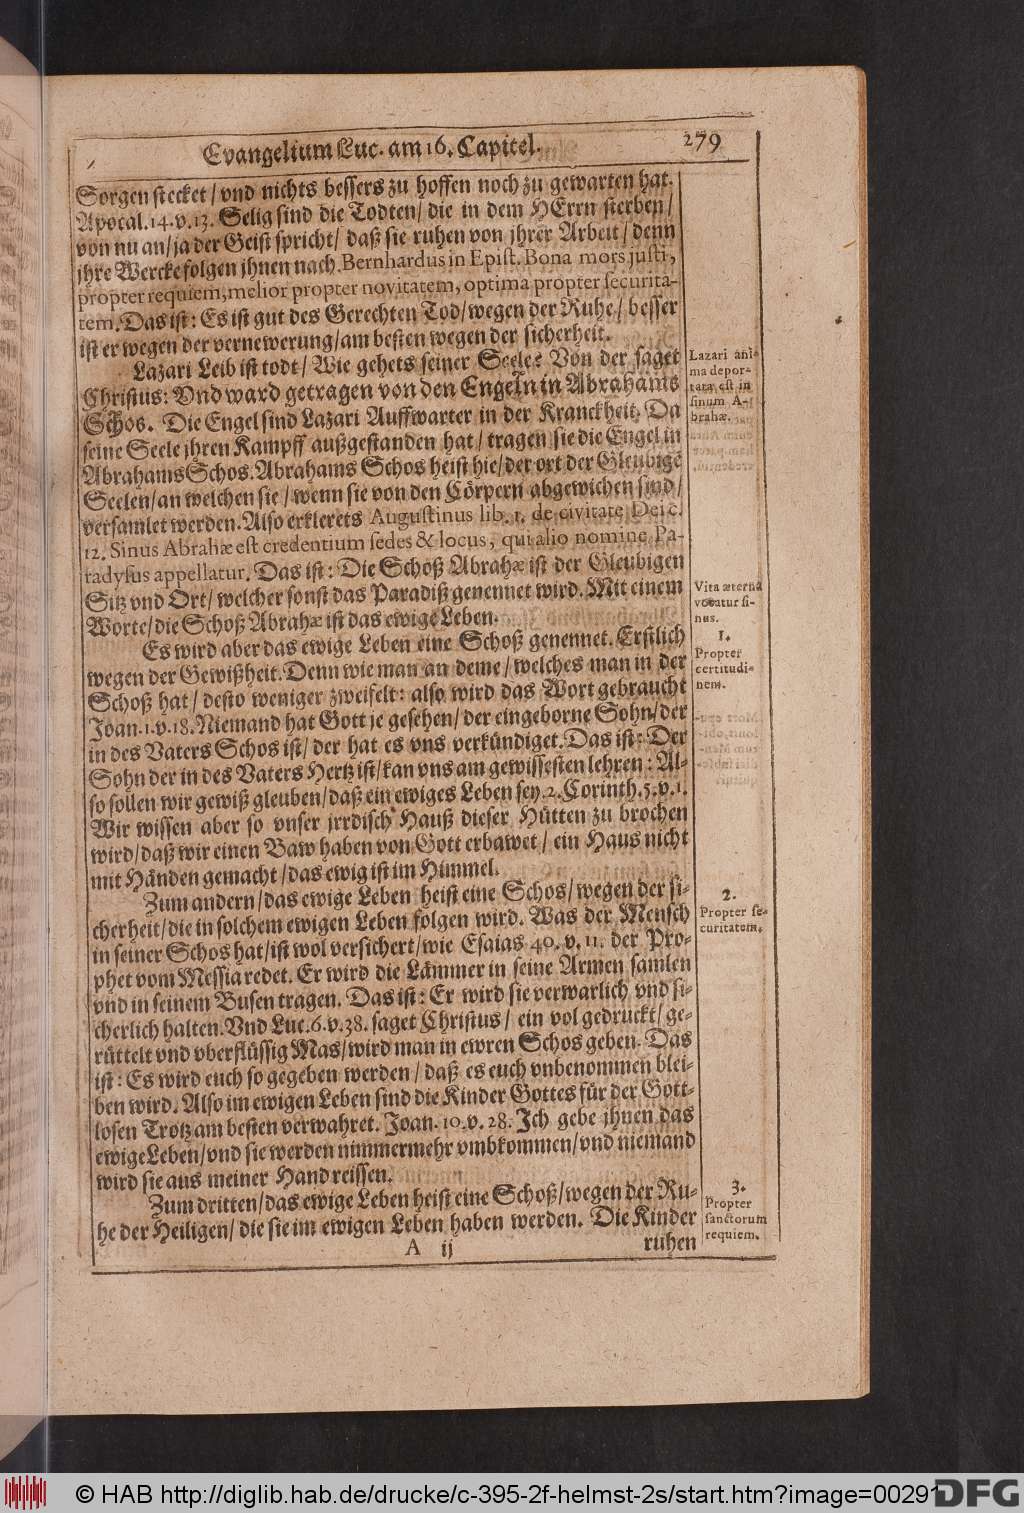 Evangelium Luc. am 16. Capitel. 279
Sorgen stecket / vnd nichts bessers zu hoffen noch zu gewarten hat.
Apocal. 14. v. 13. Selig sind die Todten / die in dem HErrn sterben /
von nu an / ja der Geist spricht / daß sie ruhen von jhrer Arbeit / denn
jhre Wercke folgen jhnen nach. Bernhardus in Epist. Bona mors justi,
propter requiem, melior propter novitatem, optima propter securita-
tem. Das ist: Es ist gut des Gerechten Tod / wegen der Ruhe / besser
ist er wegen der vernewerung / am besten wegen der sicherheit.
Lazari Leib ist todt / Wie gehets seiner Seele? Von der saget
Christus: Vnd ward getragen von den Engeln in Abrahams
Schos. Die Engel sind Lazari Auffwarter in der Kranckheit. Da
seine Seele jhren Kampff außgestanden hat / tragen sie die Engel in
Abrahams Schos. Abrahams Schos heist hie / der ort der Gleubigē
Seelen / an welchen sie / wenn sie von den Cörpern abgewichen sind /
versamlet werden. Also erklerets Augustinus lib. 1. de civitate Dei c.
12. Sinus Abrahæ est credentium sedes & locus, qui alio nomine Pa-
radysus appellatur. Das ist: Die Schoß Abrahæ ist der Gleubigen
Sitz vnd Ort / welcher sonst das Paradiß genennet wird. Mit einem
Worte / die Schoß Abrahæ ist das ewige Leben.
Es wird aber das ewige Leben eine Schoß genennet. Erstlich
wegen der Gewißheit. Denn wie man an deme / welches man in der
Schoß hat / desto weniger zweifelt: also wird das Wort gebraucht
Joan. 1. v. 18. Niemand hat Gott je gesehen / der eingeborne Sohn / der
in des Vaters Schos ist / der hat es vns verkündiget. Das ist: Der
Sohn der in des Vaters Hertz ist / kan vns am gewissesten lehren: Al-
so sollen wir gewiß gleuben / daß ein ewiges Leben sey. 2. Corinth. 5. v. 1.
Wir wissen aber so vnser jrrdisch Hauß dieser Hütten zu brochen
wird / daß wir einen Baw haben von Gott erbawet / ein Haus nicht
mit Händen gemacht / das ewig ist im Himmel.
Zum andern / das ewige Leben heist eine Schos / wegen der si-
cherheit / die in solchem ewigen Leben folgen wird. Was der Mensch
in seiner Schos hat / ist wol versichert / wie Esaias 40. v. 11. der Pro-
phet vom Messia redet. Er wird die Lämmer in seine Armen samlen
vnd in seinem Busen tragen. Das ist: Er wird sie verwarlich vnd si-
cherlich halten. Vnd Luc. 6. v. 38. saget Christus / ein vol gedruckt / ge-
rüttelt vnd vberflüssig Mas / wird man in ewren Schos geben. Das
ist: Es wird euch so gegeben werden / daß es euch vnbenommen blei-
ben wird. Also im ewigen Leben sind die Kinder Gottes für der Gott-
losen Trotz am besten verwahret. Joan. 10. v. 28. Jch gebe jhnen das
ewige Leben / vnd sie werden nimmermehr vmbkommen / vnd niemand
wird sie aus meiner Hand reissen.
Zum dritten / das ewige Leben heist eine Schoß / wegen der Ru-
he der Heiligen / die sie im ewigen Leben haben werden. Die Kinder
A ij ruhen
Lazari ani-
ma depor-
tata est in
sinum A-
brahæ.
Vita æterna
vocatur si-
nus.
1.
Propter
certitudi-
nem.
2.
Propter se-
curitatem.
3.
Propter
sanctorum
requiem.
© HAB http://diglib.hab.de/drucke/c-395-2f-helmst-2s/start.htm?image=00291
DFG